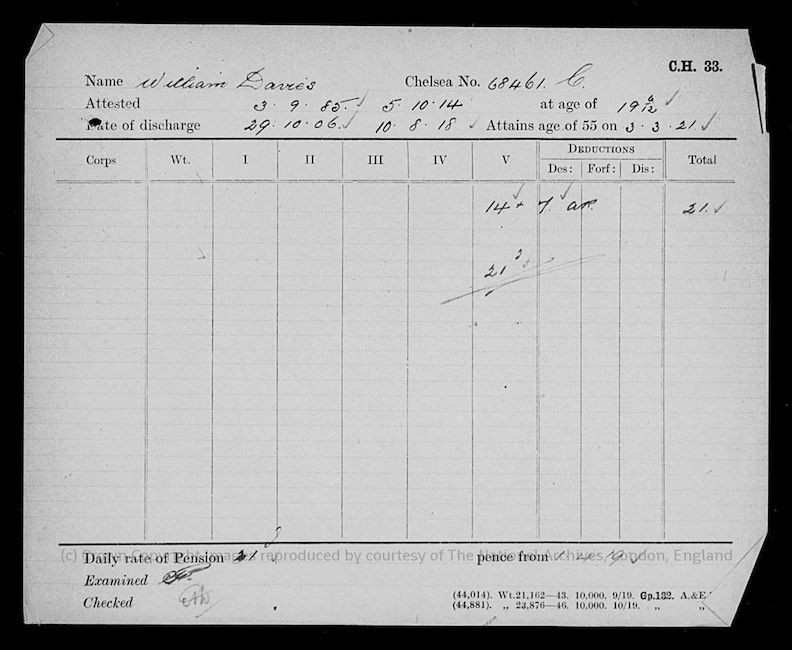 C.H. 33.
Name William Davies Chelsea No. 68461. C.
Attested 3. 9. 85. 5. 10. 14 at age of 19 6/12
Date of discharge 29. 10. 06. 10. 8. 18 Attains age of 55 on 3. 3. 21
Corps Wt. I II III IV V DEDUCTIONS Total
Des: Forf: Dis:
14 + 7. 21.
21
(c) Crown Copyright images reproduced by courtesy of The National Archives, London, England
Daily rate of Pension 21 pence from
Examined
Checked
(44,014). Wt.21,162—43. 10,000. 9/19. Gp.132. A.&E.
(44,881). „ 23,876—46. 10,000. 10/19. „ „